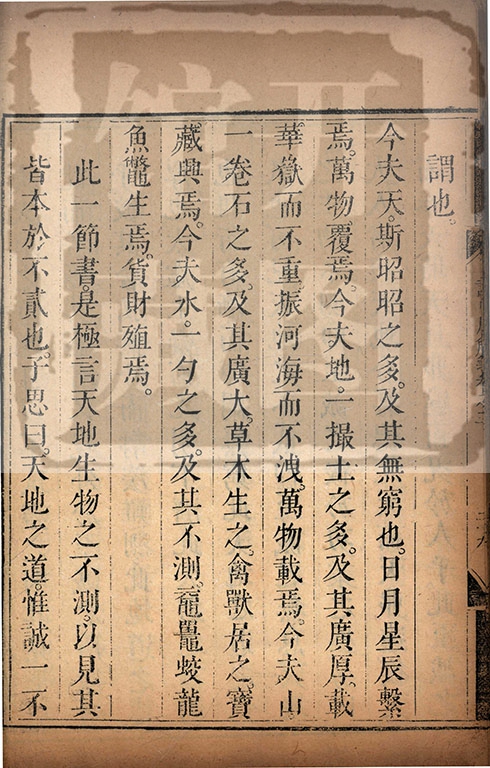 謂也。
今夫天。斯昭昭之多。及其無窮也。日月星辰繫
焉。萬物覆焉。今夫地。一撮土之多。及其廣厚。載
華嶽而不重。振河海而不洩。萬物載焉。今夫山
一卷石之多。及其廣大。草木生之。禽獸居之。寶
藏興焉。今夫水。一勺之多。及其不測。黿鼉蛟龍
魚鼈生焉。貨財殖焉。
此一節書。是極言天地生物之不測。以見其
皆本於不貳也。子思曰。天地之道。惟誠一不